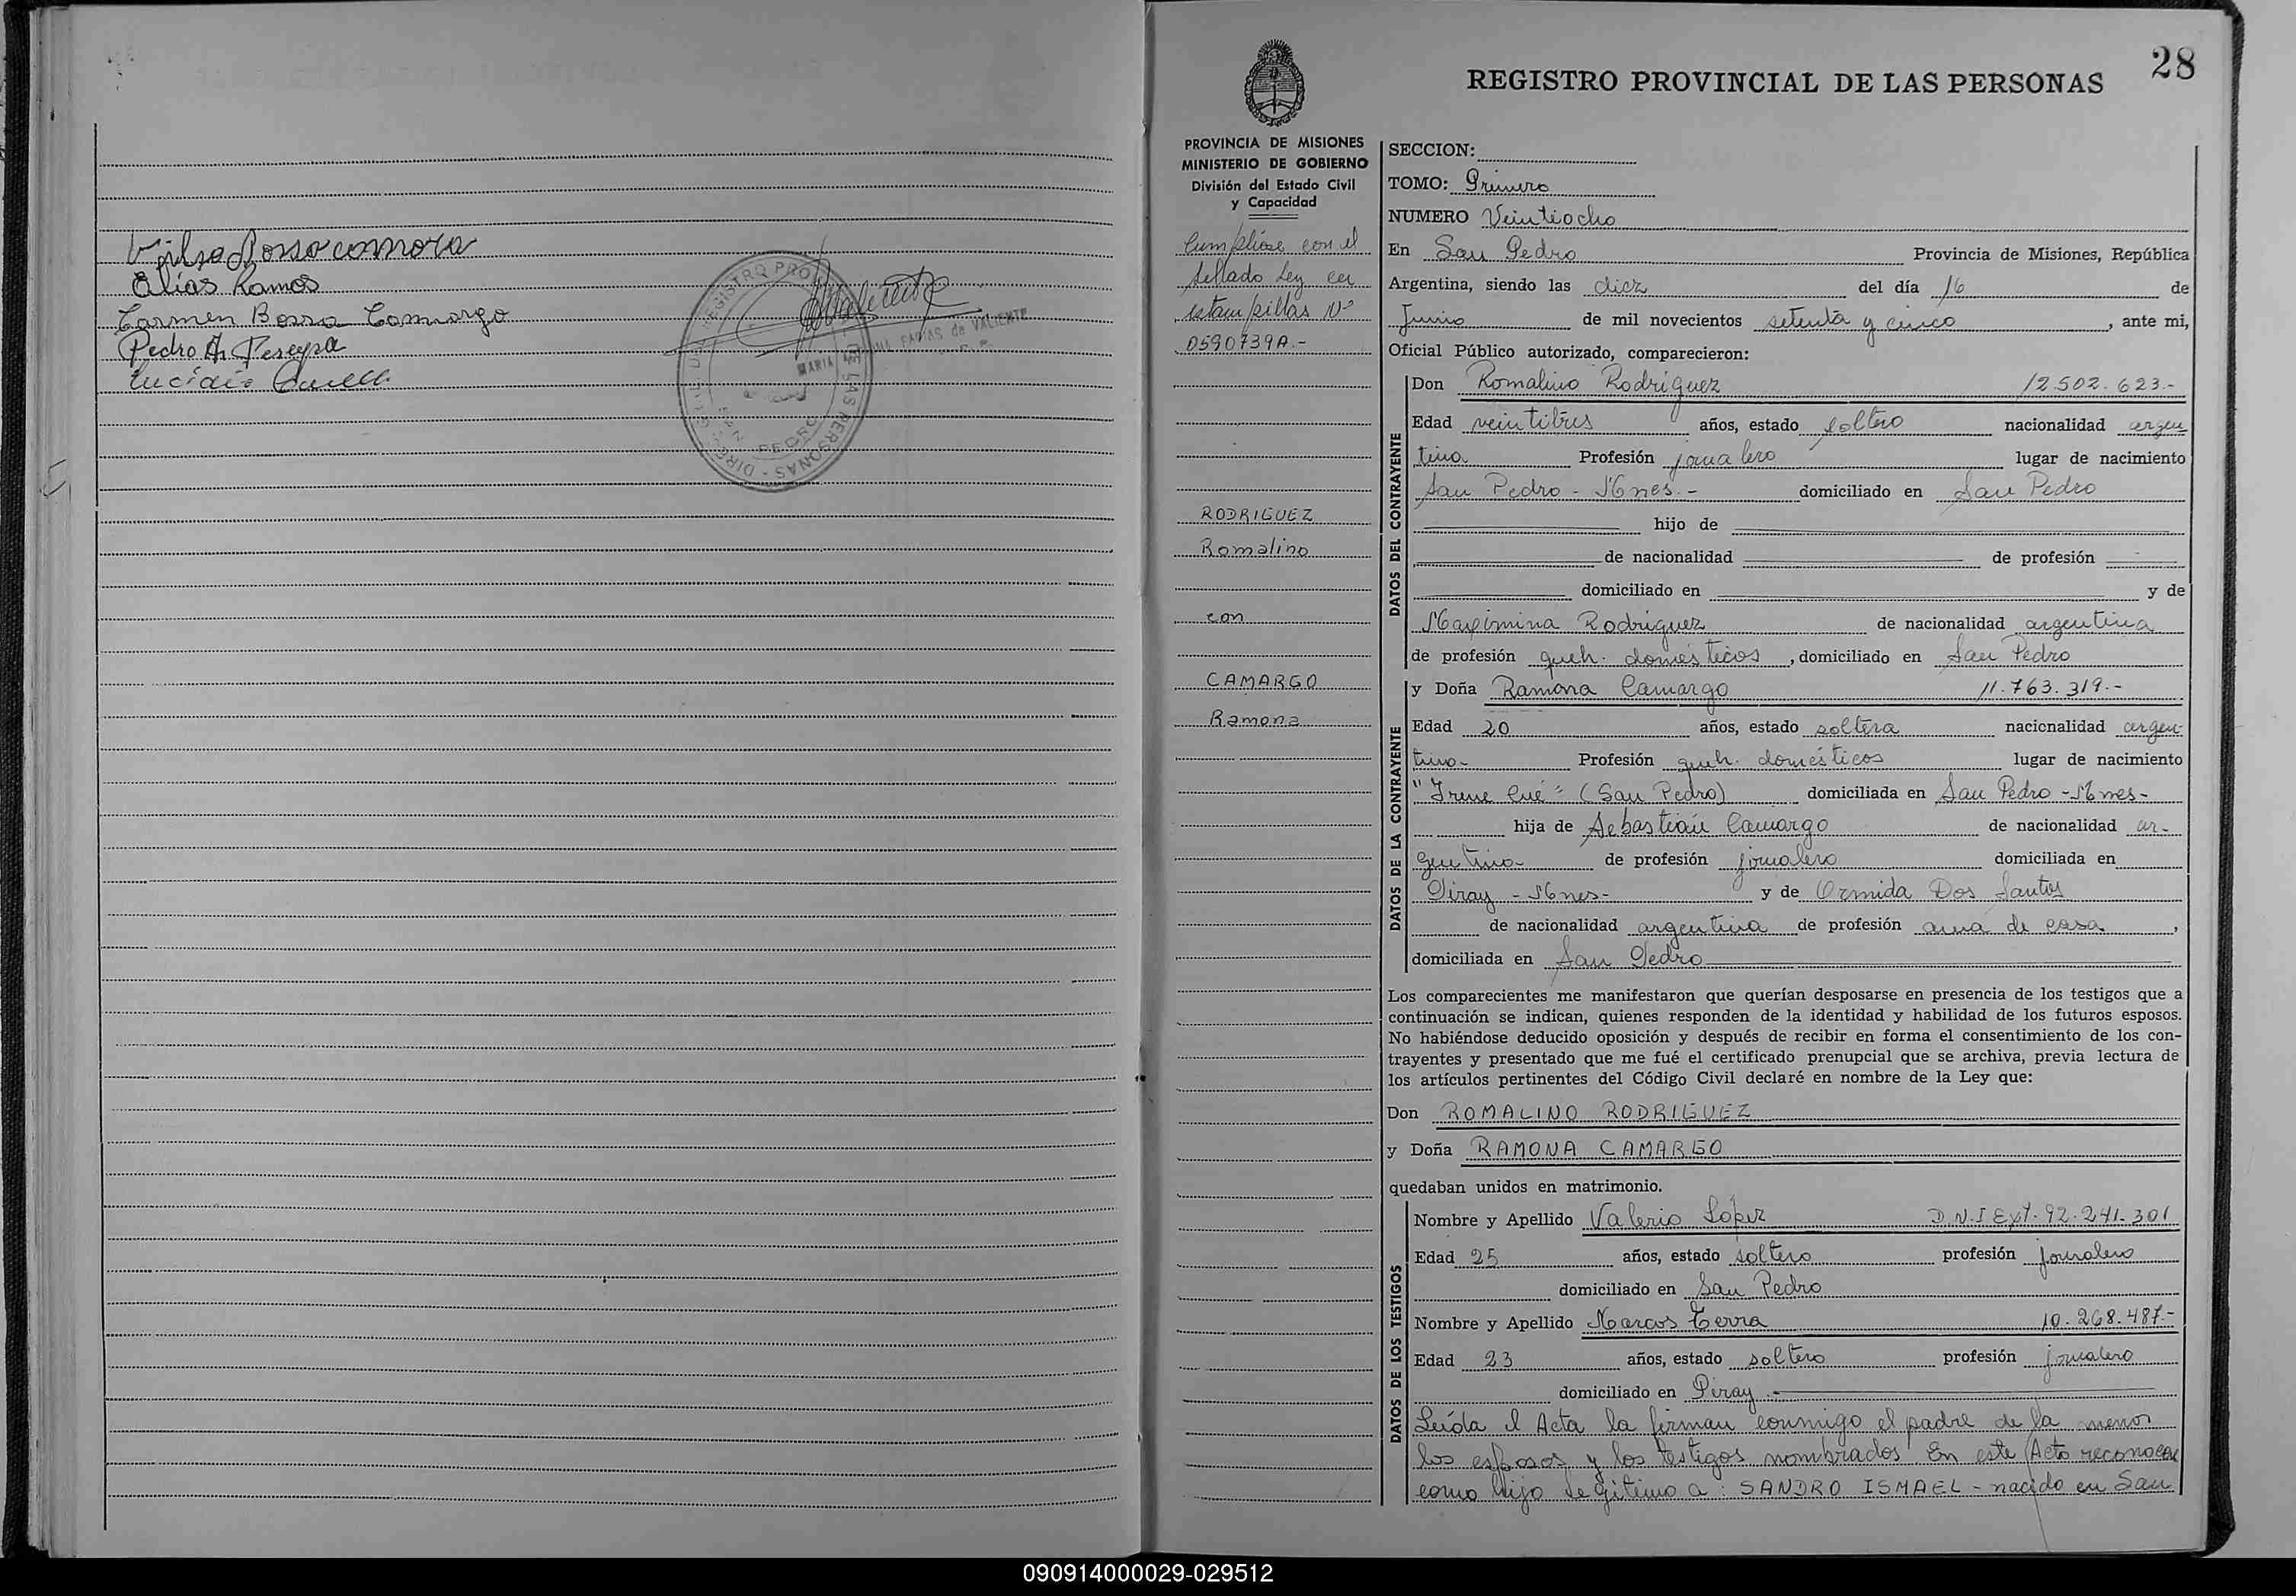 Elías Ramos
Carmen Borra Camargo
Pedro A. Pereyra
REGISTRO PROVINCIAL DE LAS PERSONAS
SAN PEDRO
MARIA FARIAS de VALIENTE
28
REGISTRO PROVINCIAL DE LAS PERSONAS
PROVINCIA DE MISIONES
MINISTERIO DE GOBIERNO
División del Estado Civil
y Capacidad
Cumpliose con el
sellado Ley en
estampillas Nº
0590739A.-
RODRIGUEZ
Romalino
con
CAMARGO
Ramona
SECCION:
TOMO: Primero
NUMERO Veintiocho
En San Pedro Provincia de Misiones, República
Argentina, siendo las diez del día 16 de
Junio de mil novecientos setenta y cinco, ante mi,
Oficial Público autorizado, comparecieron:
DATOS DEL CONTRAYENTE
Don Romalino Rodríguez 12.502.623.-
Edad veintitres años, estado soltero nacionalidad argen
tina Profesión jornalero lugar de nacimiento
San Pedro - Mnes.- domiciliado en San Pedro
hijo de
de nacionalidad de profesión
domiciliado en y de
Maximina Rodríguez de nacionalidad argentina
de profesión queh. domésticos, domiciliado en San Pedro
DATOS DE LA CONTRAYENTE
y Doña Ramona Camargo 11.763.319.-
Edad 20 años, estado soltera nacionalidad argen-
tina- Profesión queh. domésticos lugar de nacimiento
"Irene Cué" (San Pedro) domiciliada en San Pedro - Mnes-
hija de Sebastián Camargo de nacionalidad ar-
gentino- de profesión jornalero domiciliada en
Piray - Mnes- y de Ormida Dos Santos
de nacionalidad argentina de profesión ama de casa,
domiciliada en San Pedro
Los comparecientes me manifestaron que querían desposarse en presencia de los testigos que a
continuación se indican, quienes responden de la identidad y habilidad de los futuros esposos.
No habiéndose deducido oposición y después de recibir en forma el consentimiento de los con-
trayentes y presentado que me fué el certificado prenupcial que se archiva, previa lectura de
los artículos pertinentes del Código Civil declaré en nombre de la Ley que:
Don ROMALINO RODRIGUEZ
y Doña RAMONA CAMARGO
quedaban unidos en matrimonio.
DATOS DE LOS TESTIGOS
Nombre y Apellido Valerio López D.N.I Ext. 92.241.301
Edad 25 años, estado soltero profesión jornalero
domiciliado en San Pedro
Nombre y Apellido Marcos Terra 10.268.487.-
Edad 23 años, estado soltero profesión jornalero
domiciliado en Piray.-
Leída el Acta la firman conmigo el padre de la menor
los esposos y los testigos nombrados. En este Acto reconocen
como hijo legítimo a: SANDRO ISMAEL - nacido en San
090914000029-029512